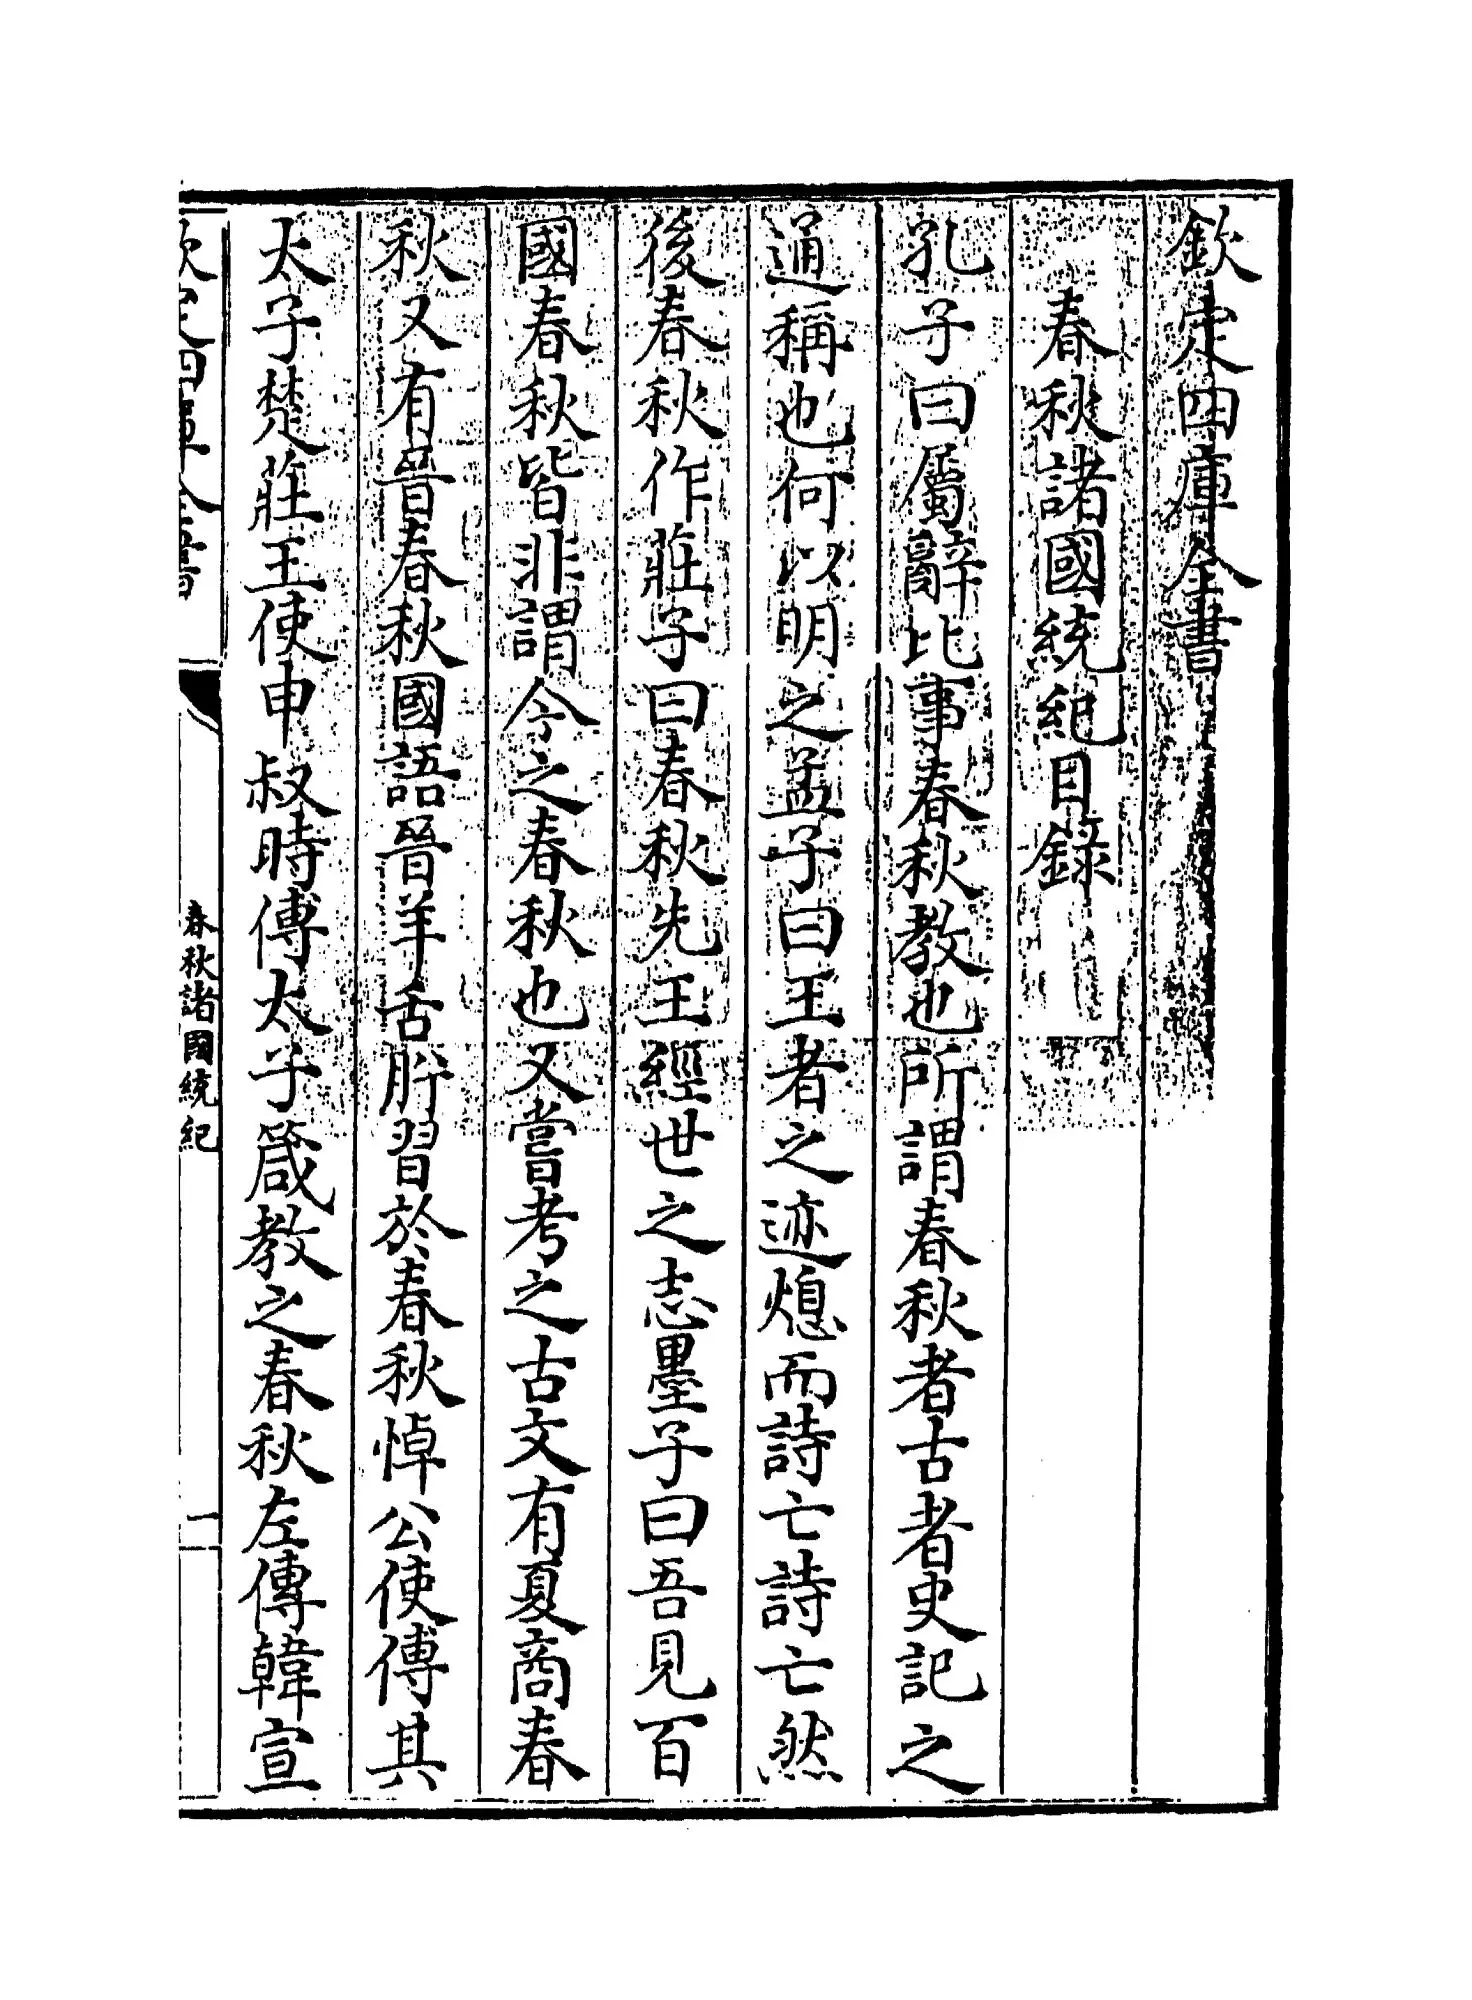 欽定四庫全書
春秋諸國統紀目錄
孔子曰屬辭比事春秋教也所謂春秋者古者史記之
通稱也何以明之孟子曰王者之迹熄而詩亡詩亡然
後春秋作莊子曰春秋先王經世之志墨子曰吾見百
國春秋皆非謂今之春秋也又嘗考之古文有夏商春
秋又有晉春秋國語晉羊舌肸習於春秋悼公使傅其
太子楚莊王使申叔時傅太子箴教之春秋左傳韓宣
欽定四庫全書
春秋諸國統紀
一